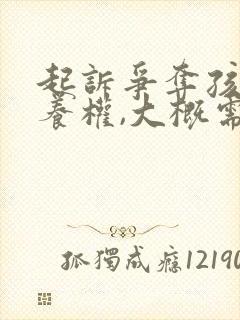 起訴爭奪孩
養權,大概需
孤獨成癮12190